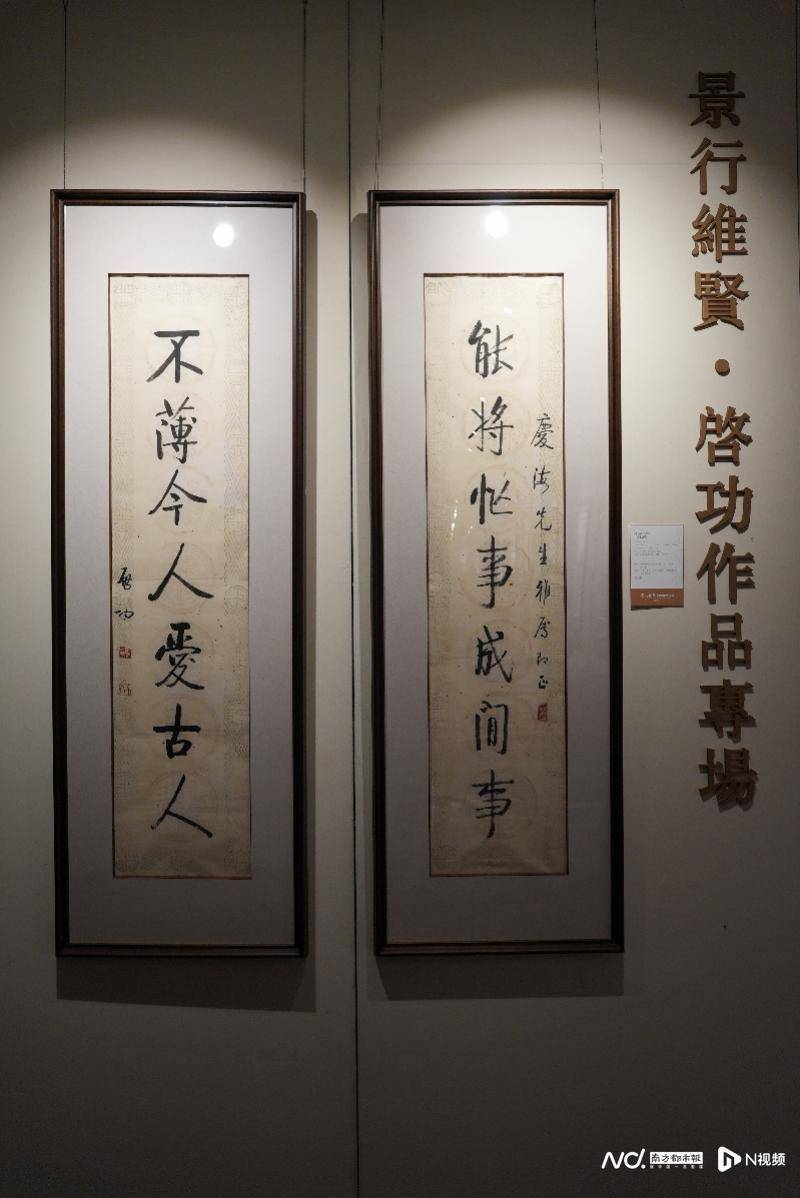 景行維賢·啓功作品專場
慶海先生雅屬即正
能將忙事成閒事
不薄今人愛古人
啓功
南方都市報
N视频